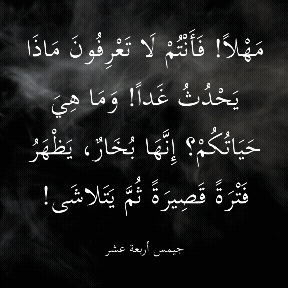 مَهْلاً! فَأَنْتُمْ لَا تَعْرِفُونَ مَاذَا
يَحْدُثُ غَداً! وَمَا هِيَ
حَيَاتُكُمْ؟ إِنَّهَا بُخَارٌ، يَظْهَرُ
فَتْرَةً قَصِيرَةً ثُمَّ يَتَلاشَى!
جيمس أربعة عشر